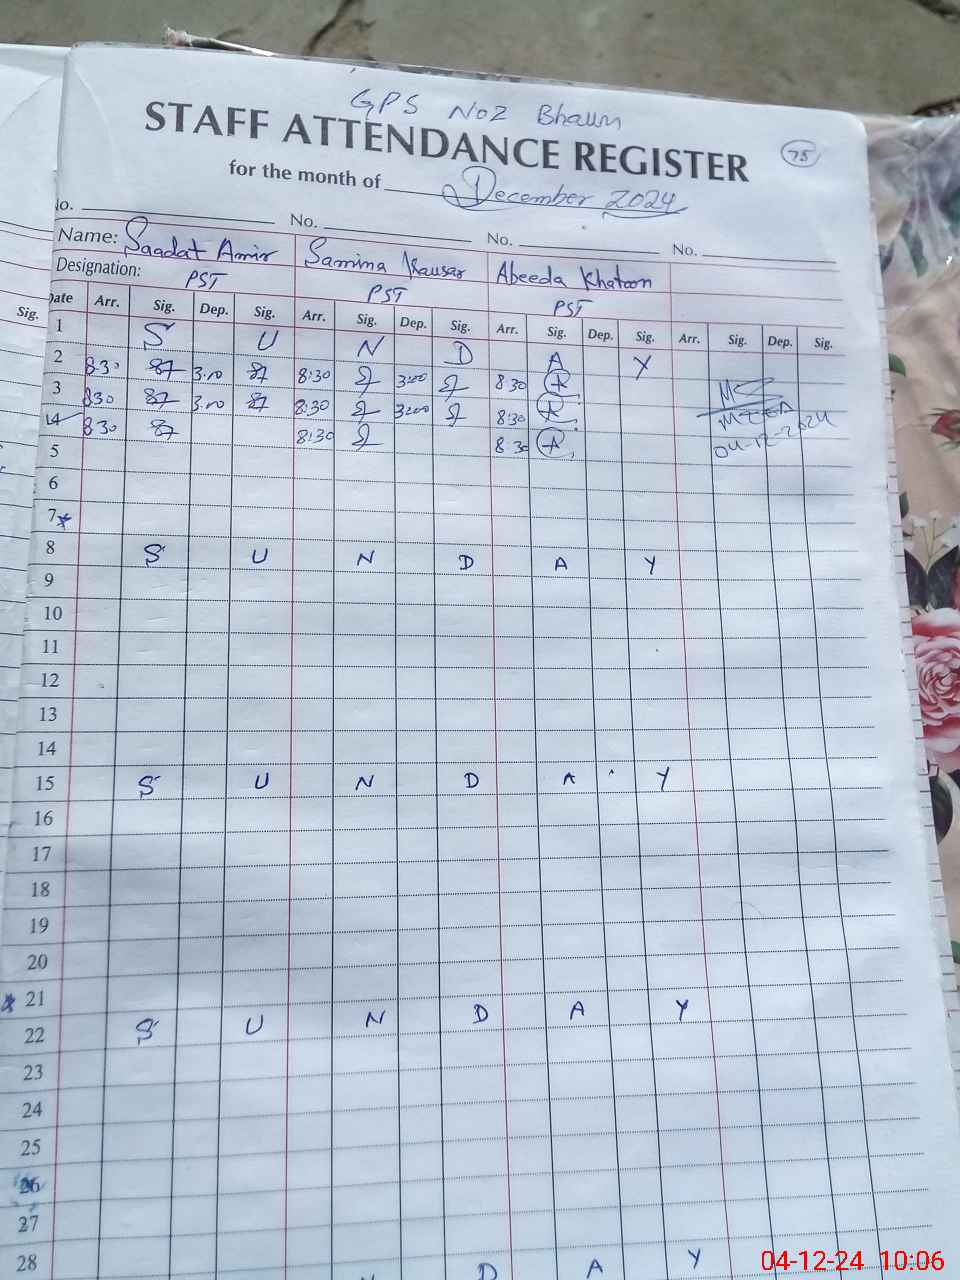 GPS No2 Bhaun
STAFF ATTENDANCE REGISTER
75
for the month of December 2024
No. No. No. No.
Name: Saadat Amir Samina Kausar Abeeda Khatoon
Designation: PST PST PST
Sig. Date Arr. Sig. Dep. Sig. Arr. Sig. Dep. Sig. Arr. Sig. Dep. Sig. Arr. Sig. Dep. Sig.
1 S U N D A Y
2 8.30 3.00 8:30 3:00 8:30
3 8.30 3.00 8:30 3:00 8:30
4 8.30 8:30 8:30
MEA
04-12-2024
5
6
7
8 S U N D A Y
9
10
11
12
13
14
15 S U N D A Y
16
17
18
19
20
21
22 S U N D A Y
23
24
25
26
27
28
N D A Y
04-12-24 10:06